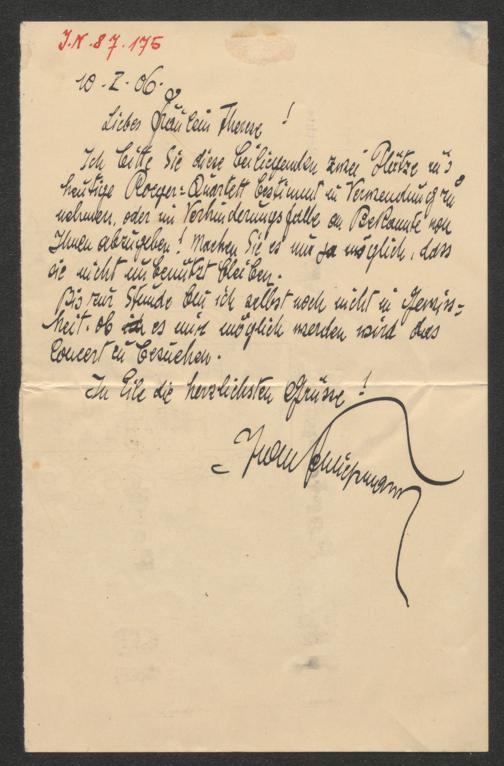 J.N. 87.175
10. I. 06.
Liebes Fräulein Therese!
Ich bitte Sie diese beiliegenden zwei Plätze in's
heutige Roeger-Quartett bestimmt in Verwendung zu
nehmen, oder im Verhinderungsfalle an Bekannte von
Ihnen abzugeben! Machen Sie es nur ja möglich, dass
sie nicht unbenützt bleiben.
Bis zur Stunde bin ich selbst noch nicht in Gewiss-
heit, ob ich es mir möglich werden wird das
Concert zu besuchen.
In Eile die herzlichsten Grüsse!